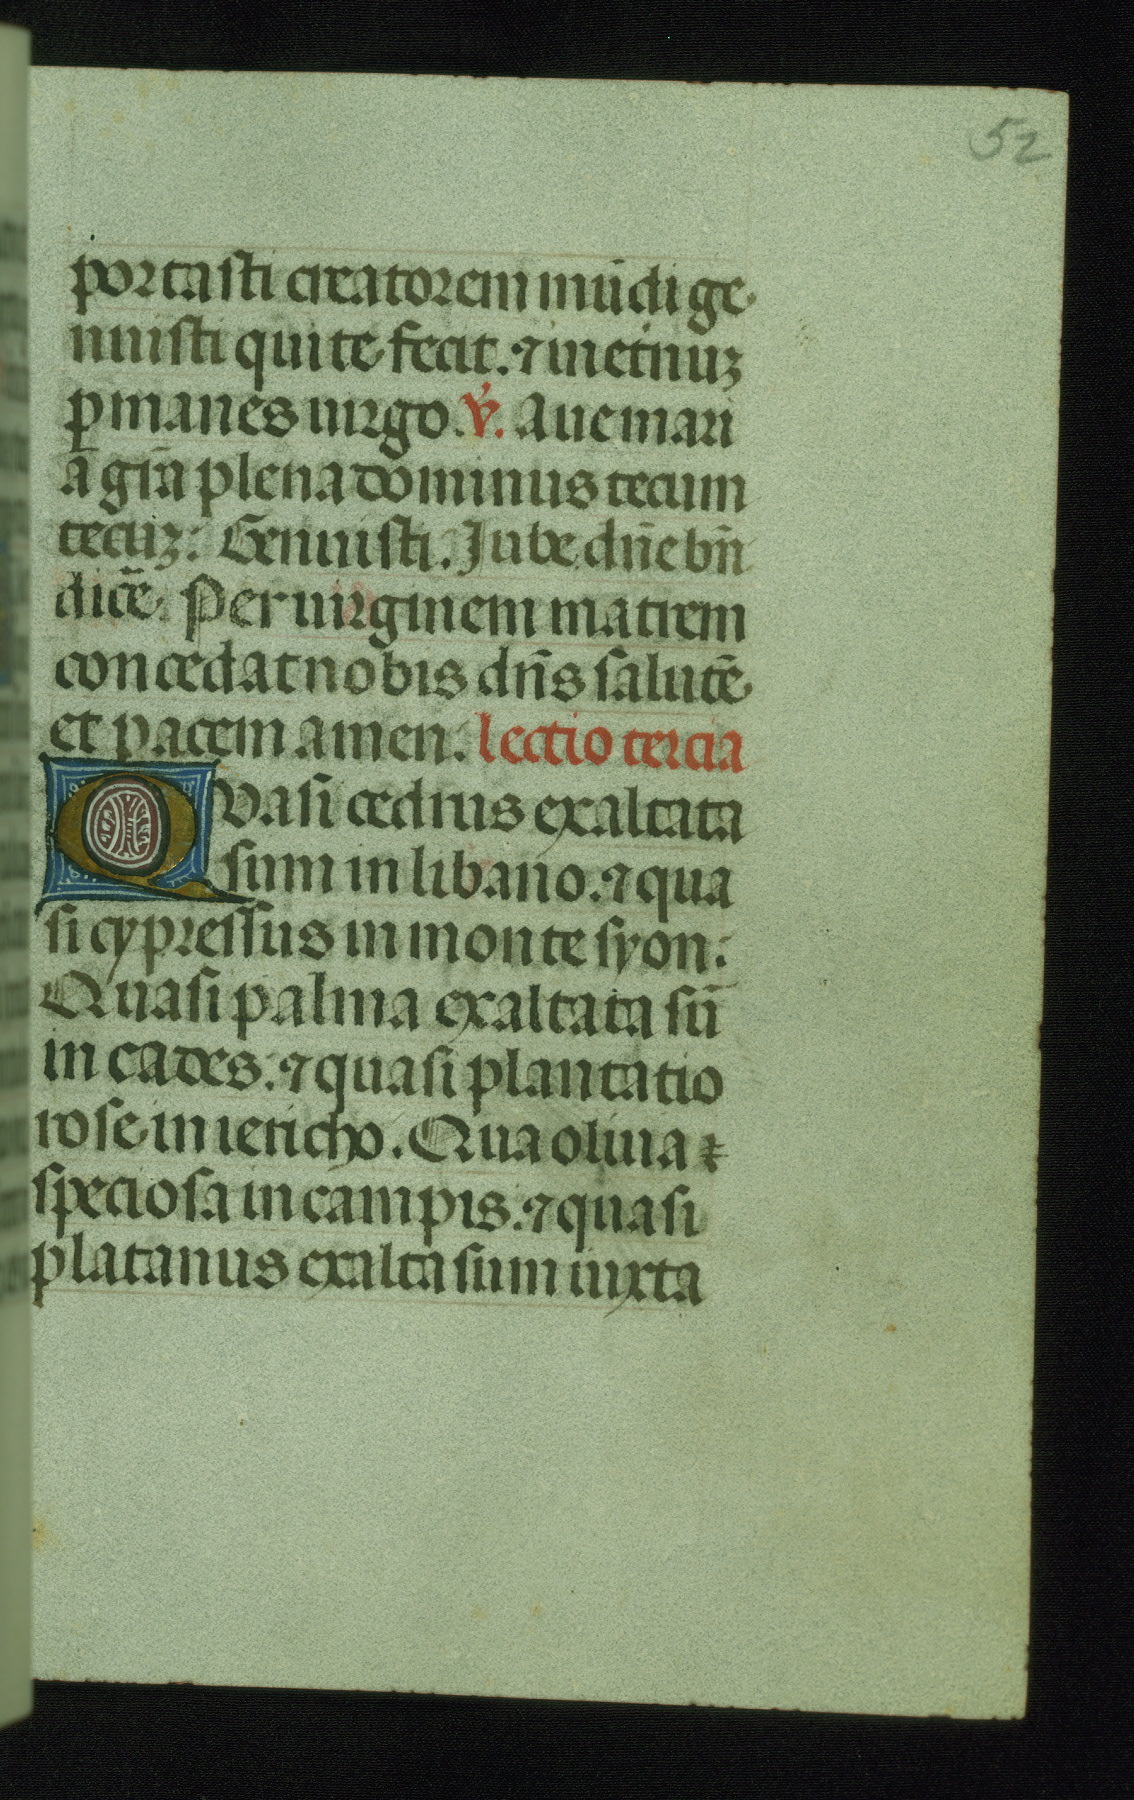 52
portasti creatorem mūdi ge
nuisti qui te fecit. ⁊ in etnuꝫ
ꝑmanes uirgo. v̄. Aue mari
ā gr̄a plena dominus tecum
tecuꝫ: Genuisti. Jube dn̄e bn̄
dicē. Per uirginem matrem
concedat nobis dn̄s salutē
et pacem amen. lectio tercia
Quasi cedrus exaltata
sum in libano. ⁊ qua
si cypressus in monte syon:
Quasi palma exaltata sū
in cades: ⁊ quasi plantatio
rose in iericho. Qua oliua
speciosa in campis. ⁊ quasi
platanus exalta sum iuxta